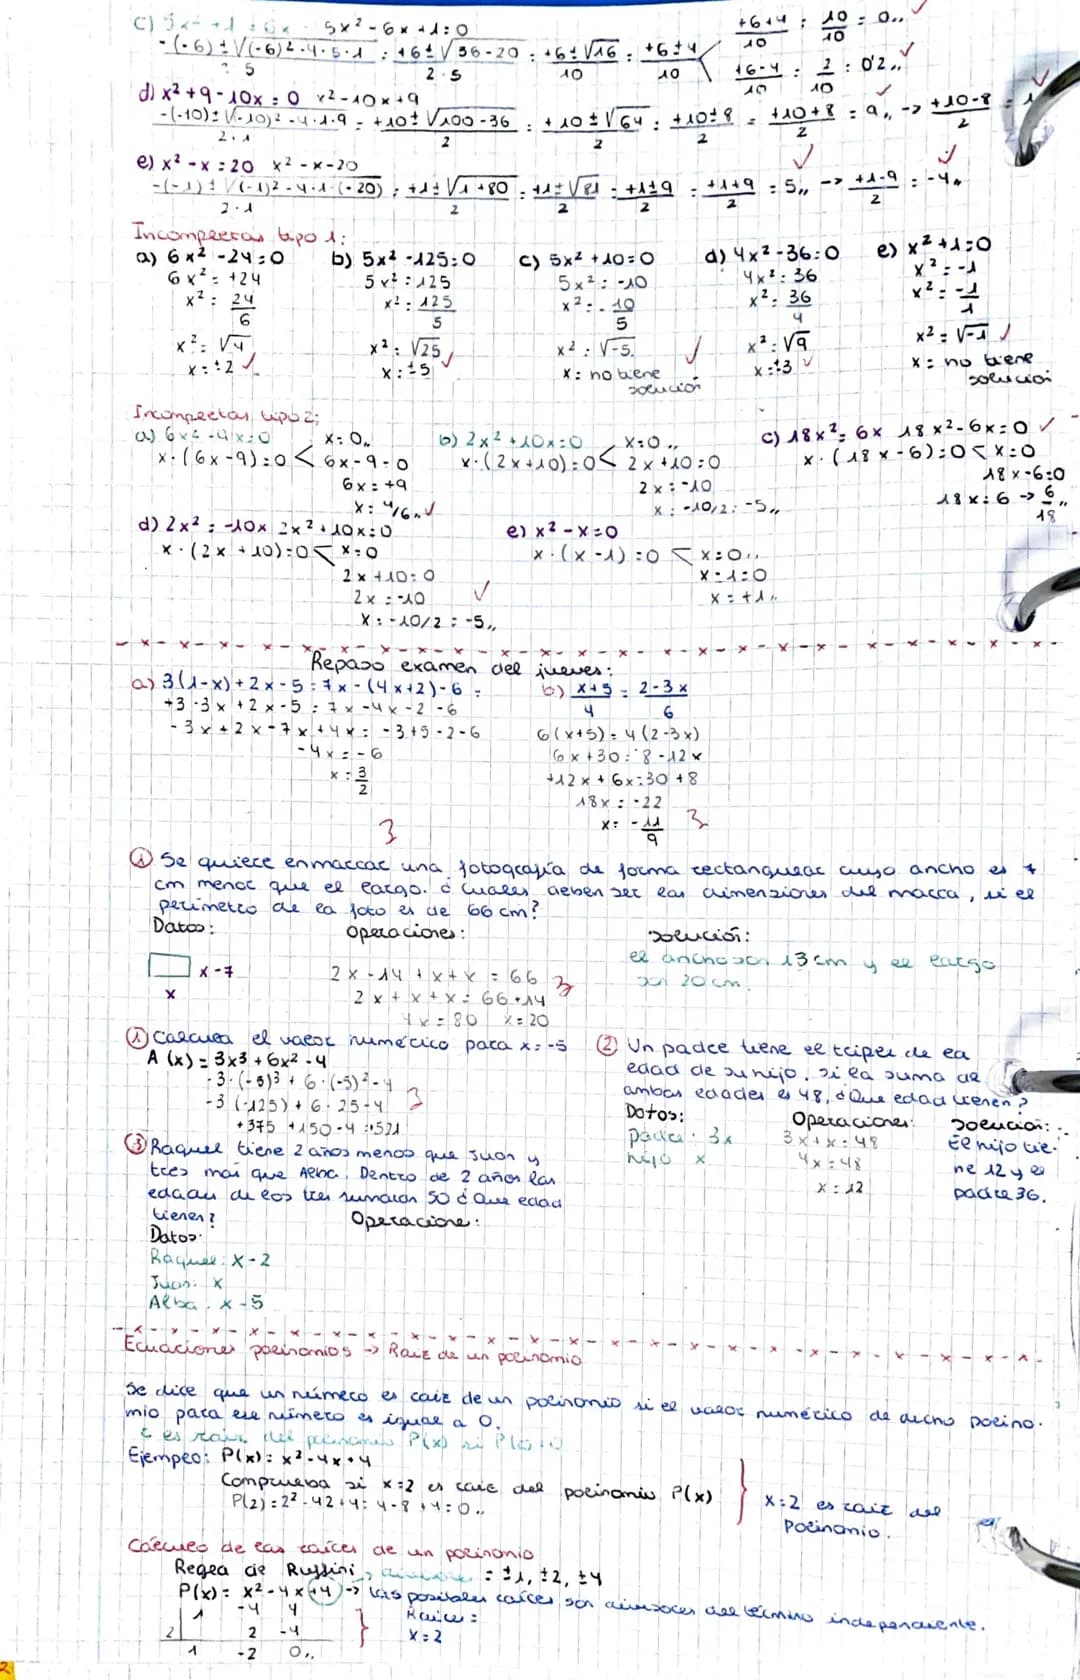 c) 5x² + 1 = 6x   5x² - 6x + 1 = 0
-(-6) ± √(-6)² - 4·5·1 / 2·5 = +6 ± √36-20 / 2·5 = +6 ± √16 / 10 = +6 ± 4 / 10 < +6+4 / 10 = 10/10 = 0,, ✓
+6-4 / 10 = 2/10 = 0'2,, ✓
d) x² + 9 - 10x = 0   x² - 10x + 9
-(-10) ± √(-10)² - 4·1·9 / 2·1 = +10 ± √100-36 / 2 = +10 ± √64 / 2 = +10 ± 8 / 2 = +10+8 / 2 = 9,, -> +10-8 / 2 = 1 ✓
e) x² - x = 20   x² - x - 20
-(-1) ± √(-1)² - 4·1·(-20) / 2·1 = +1 ± √1+80 / 2 = +1 ± √81 / 2 = +1 ± 9 / 2 = +1+9 / 2 = 5,, -> +1-9 / 2 = -4,,
Incompletas tipo 1:
a) 6x² - 24 = 0
6x² = +24
x² = 24/6
x² = √4
x = ±2 ✓
b) 5x² - 125 = 0
5x² = 125
x² = 125/5
x² = √25
x = ±5 ✓
c) 5x² + 10 = 0
5x² = -10
x² = -10/5
x² = √-5
x = no tiene
solución
d) 4x² - 36 = 0
4x² = 36
x² = 36/4
x² = √9
x = ±3 ✓
e) x² + 1 = 0
x² = -1
x² = -1/1
x² = √-1 ✓
x = no tiene
solución
Incompletas tipo 2:
a) 6x² - 9x = 0
x·(6x-9) = 0 < x = 0,,
6x - 9 = 0
6x = +9
x = 9/6,, ✓
b) 2x² + 10x = 0
x·(2x+10) = 0 < x = 0,,
2x + 10 = 0
2x = -10
x = -10/2 = -5,,
c) 18x² = 6x   18x² - 6x = 0 ✓
x·(18x-6) = 0 < x = 0
18x - 6 = 0
18x = 6 -> 6/18,,
d) 2x² = -10x   2x² + 10x = 0
x·(2x+10) = 0 < x = 0
2x + 10 = 0
2x = -10
x = -10/2 = -5,,
e) x² - x = 0
x·(x-1) = 0 < x = 0,,
x - 1 = 0
x = +1,,
Repaso examen del jueves:
a) 3(1-x) + 2x - 5 = 7x - (4x+2) - 6 =
+3 - 3x + 2x - 5 = 7x - 4x - 2 - 6
-3x + 2x - 7x + 4x = -3 + 5 - 2 - 6
-4x = -6
x = 3/2
b) x+5 / 4 = 2-3x / 6
6(x+5) = 4(2-3x)
6x + 30 = 8 - 12x
+12x + 6x = 30 + 8
18x = -22
x = -11/9
① Se quiere enmarcar una fotografía de forma rectangular cuyo ancho es 7
cm menor que el largo. ¿Cuales deben ser las dimensiones del marco, si el
perímetro de la foto es de 66 cm?
Datos:
x - 7
x
Operaciones:
2x - 14 + x + x = 66
2x + x + x = 66 + 14
4x = 80   x = 20
Solución:
el ancho son 13 cm y el largo
son 20 cm.
① Calcula el valor numérico para x = -5
A(x) = 3x³ + 6x² - 4
-3·(-5)³ + 6·(-5)² - 4
-3(-125) + 6·25 - 4
+375 + 150 - 4 = 521
② Un padre tiene el triple de la
edad de su hijo, si la suma de
ambas edades es 48, ¿Que edad tienen?
Datos:
padre: 3x
hijo x
Operaciones:
3x + x = 48
4x = 48
x = 12
Solución:
El hijo tie-
ne 12 y el
padre 36.
③ Raquel tiene 2 años menos que Juan y
tres mas que Alba. Dentro de 2 años las
edades de los tres sumaran 50 ¿Que edad
tienen?
Operacione:
Datos:
Raquel: x - 2
Juan: x
Alba: x - 5
Ecuaciones polinomios -> Raiz de un polinomio
Se dice que un número es raiz de un polinomio si el valor numérico de dicho polino-
mio para ese número es igual a 0.
es raiz del polinomio P(x) si
Ejemplo: P(x) = x² - 4x + 4
Comprueba si x = 2 es raiz del polinomio P(x)
P(2) = 2² - 42 + 4 = 4 - 8 + 4 = 0,,
x = 2 es raiz del
Polinomio.
Cálculo de las raíces de un polinomio
Regla de Ruffini = ±1, ±2, ±4
P(x) = x² - 4x + 4 -> Las posibles raíces son divisores del término independiente.
1 -4 4
2 2 -4
1 -2 0,,
Raices:
x = 2
2